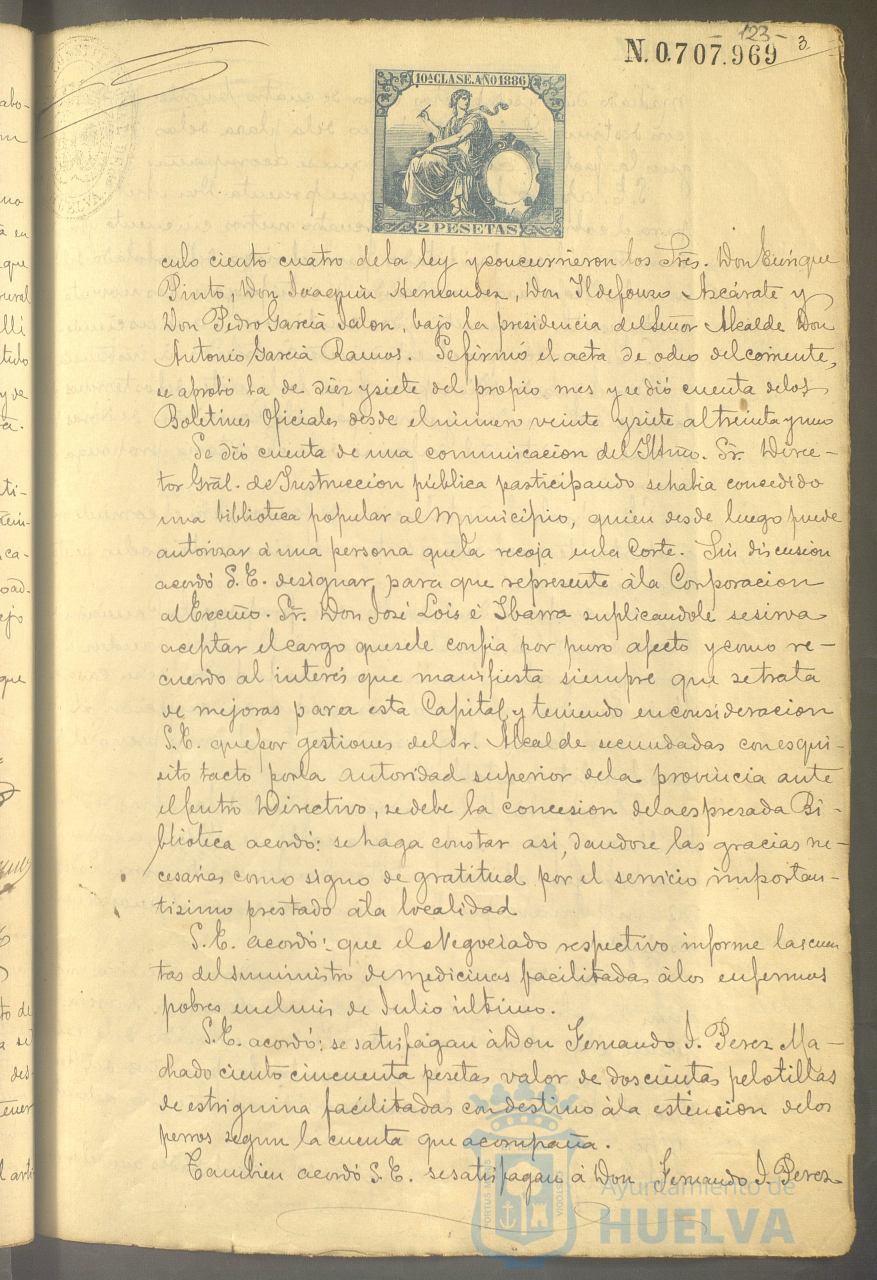 123-
N. 0.707.969 3
10ª CLASE. AÑO 1886
2 PESETAS
HUELVA
culo ciento cuatro de la ley y concurrieron los Sres. Don Enrique
Pinto, Don Joaquin Hernandez, Don Ildefonso Azcárate y
Don Pedro Garcia Jalon, bajo la presidencia del Señor Alcalde Don
Antonio Garcia Ramos. Se firmó el acta de ocho del corriente,
se aprobó la de diez y siete del propio mes y se dió cuenta de los
Boletines Oficiales desde el número veinte y siete al treinta y uno
Se dió cuenta de una comunicacion del Iltmo. Sr. Direc-
tor Gral. de Instruccion pública participando se habia consedido
una biblioteca popular al Municipio, quien desde luego puede
autorizar á una persona que la recoja en la Corte. Sin discusion
acordó S.E. designar para que represente á la Corporacion
al Excmo. Sr. Don José Lois é Ibarra suplicandole se sirva
aceptar el cargo que se le confia por puro afecto y como re-
cuerdo al interés que manifiesta siempre que se trata
de mejoras para esta Capital y teniendo en consideracion
S.E. que por gestiones del Sr. Alcalde secundadas con esqui-
sito tacto por la autoridad superior de la provincia ante
el Centro Directivo, se debe la concesion de la espresada Bi-
blioteca acordó: se haga constar asi, dandose las gracias ne-
cesarias como signo de gratitud por el servicio importan-
tisimo prestado á la localidad
S.E. acordó: que el Negociado respectivo informe las cuen
tas del suministro de medicinas facilitadas á los enfermos
pobres en el mes de Julio último.
S.E. acordó: se satisfagan á Don Fernando J. Perez Ma-
chado ciento cincuenta pesetas valor de doscientas pelotillas
de estrignina facilitadas con destino á la estincion de los
perros segun la cuenta que acompaña.
Tambien acordó S.E. se satisfagan á Don Fernando J. Perez
Ayuntamiento de
HUELVA